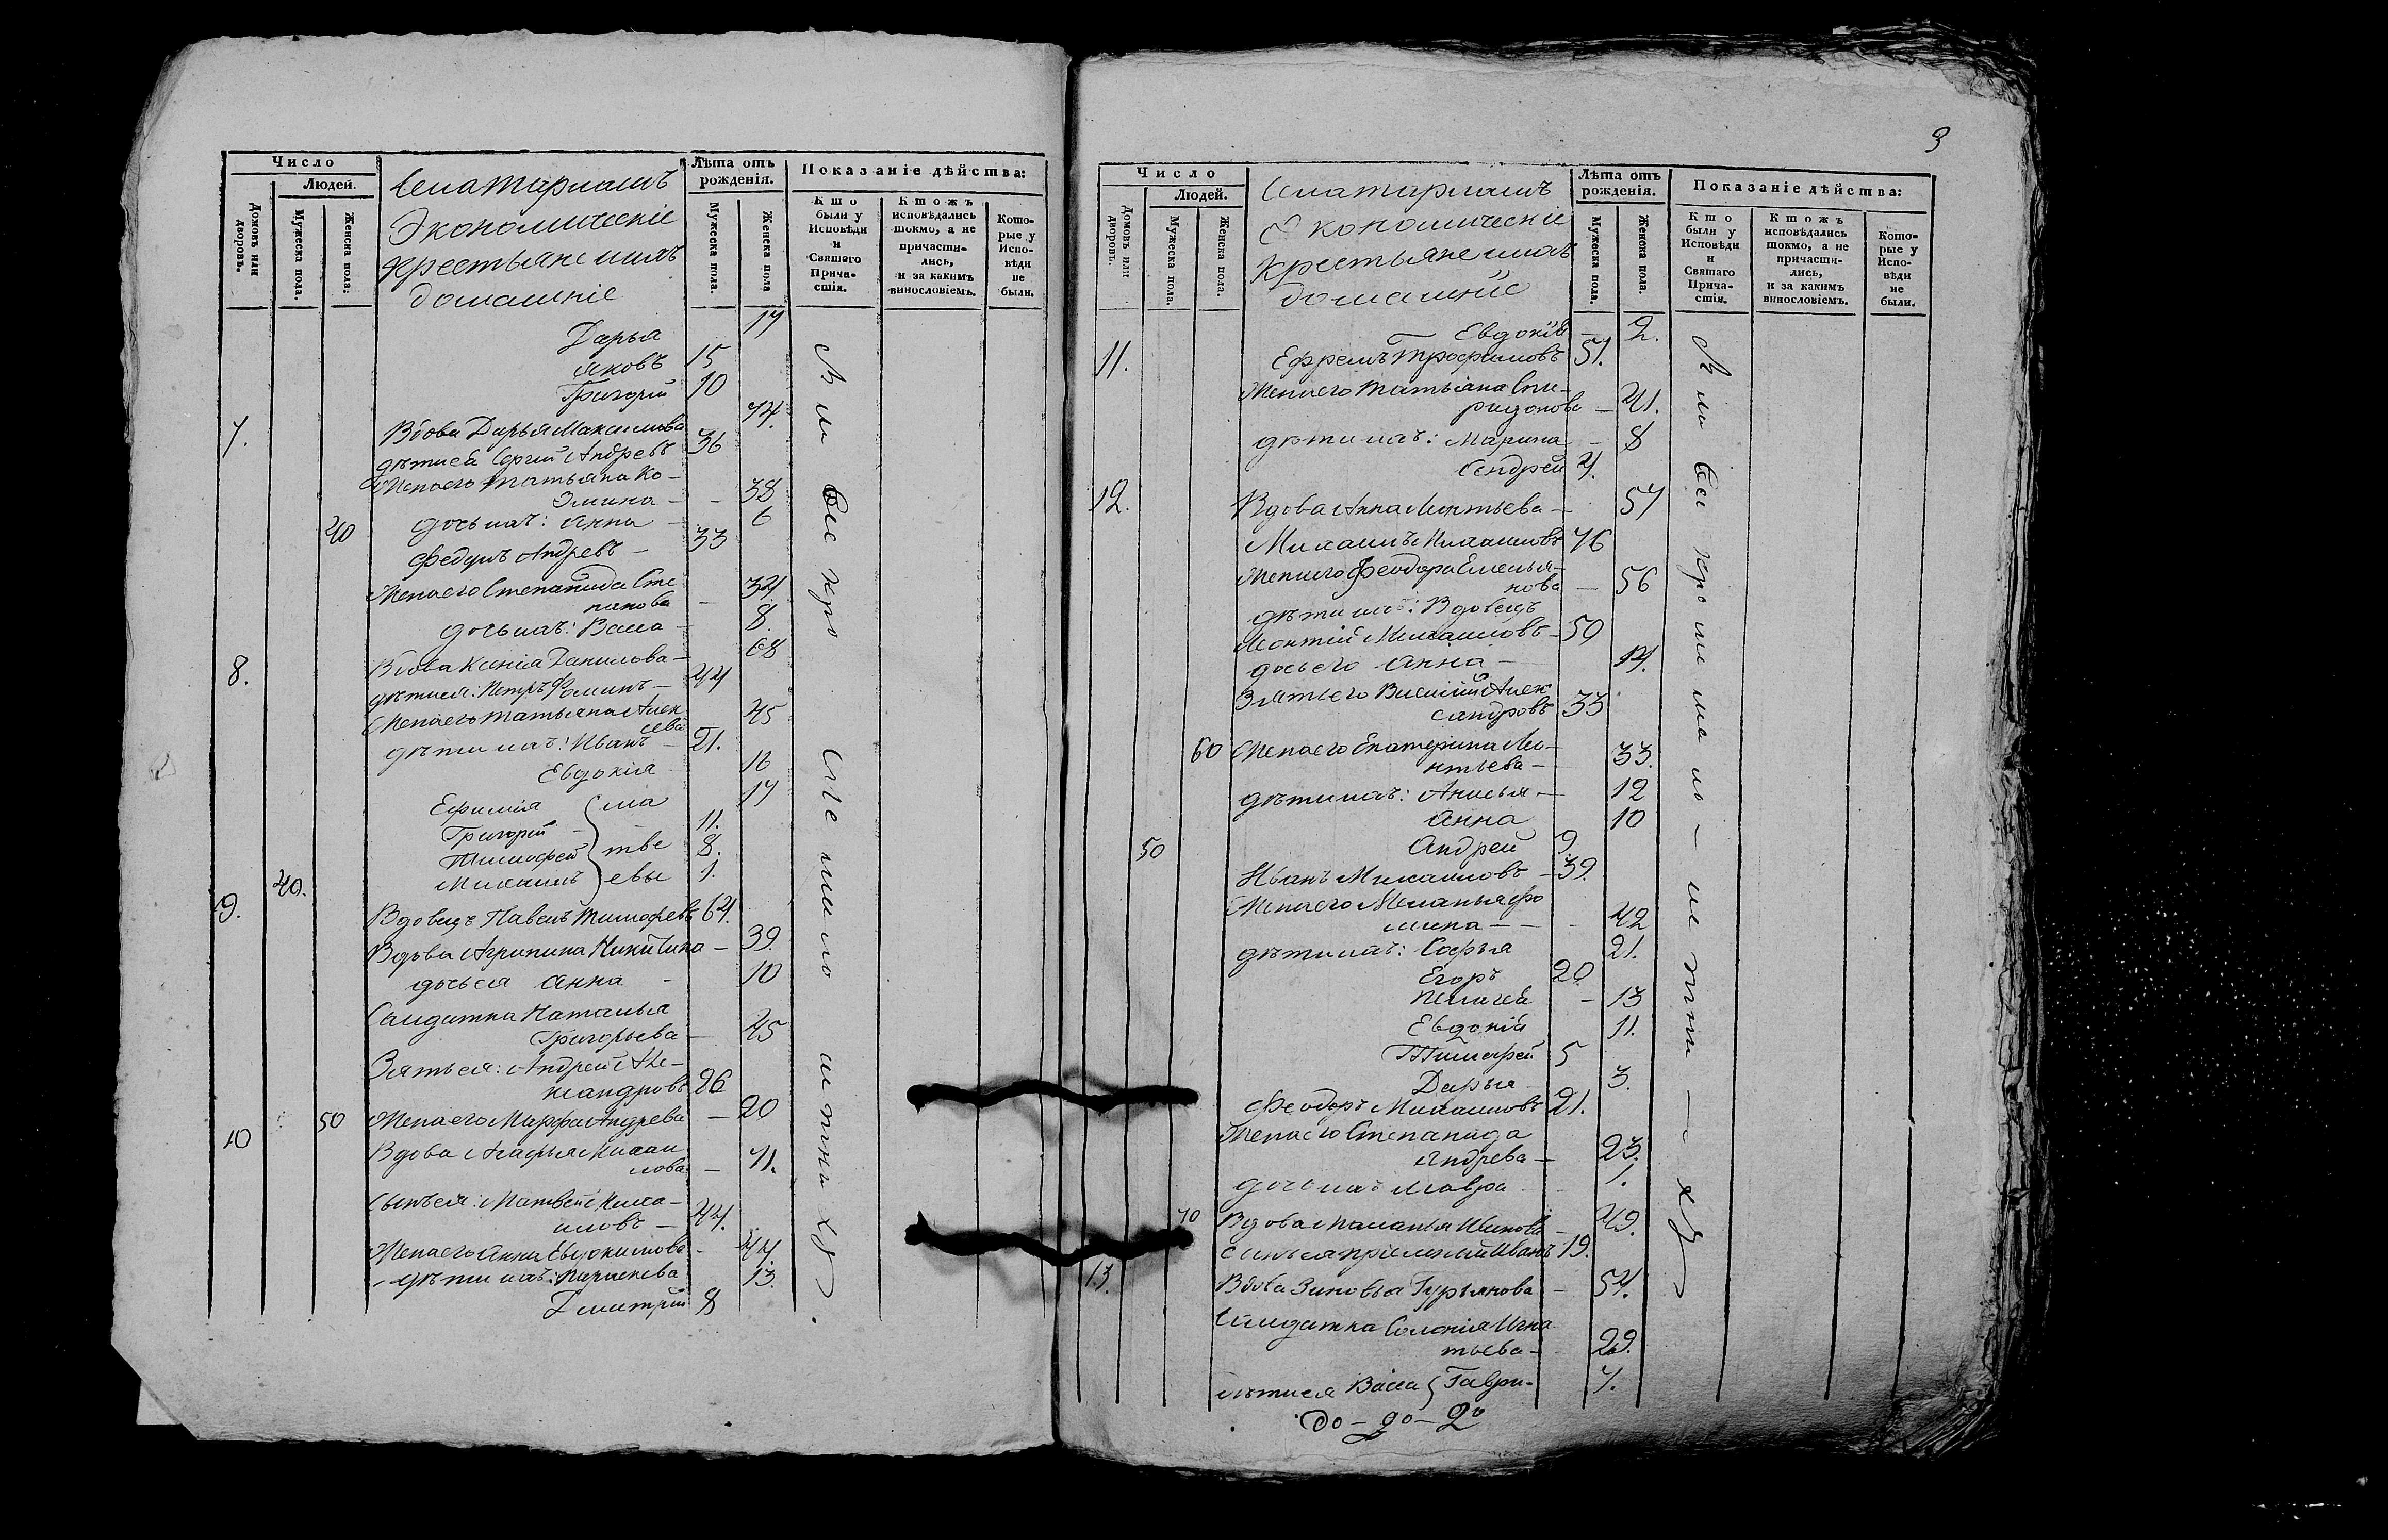 Число
Людей.
Домовъ или дворовъ.
Мужеска пола.
Женска пола.
Экономическіе
крестьяне ихъ
домашніе
Лѣта отъ рожденія.
Мужеска пола.
Женска пола
Показаніе дѣйства:
Кто были у Исповѣди и Святаго Причастія.
Ктожъ исповѣдались токмо, а не причастились, и за какимъ винословіемъ.
Которые у Исповѣди не были.
Дарья 17
Яковъ 15
Григорій 10
7. Вдова Дарья Максимова 74.
дѣти ея Сергій Андреевъ 36
Жена его Татьяна Ко-
змина - - 38
40 дочь ихъ: Анна 6
Федулъ Андреевъ - 33
Жена его Степанида Сте
панова - 34.
дочь ихъ: Васса - 8.
8. Вдова Ксенія Данилова - 68
дѣти ея: Петръ Фоминъ - 44
Жена его Татьяна Алек
сѣева 45
дѣти ихъ: Иванъ - 21.
Евдокія
Ефимія 17
Григорій - 11.
Тимофей 8.
40. Михаилъ 1.
ма
тве
евы
9. Вдовецъ Павелъ Тимофеевъ 64.
Вдова Агрипина Никитина - 39.
дочь ея Анна - 10
Салдатка Наталья
Григорьева - 45
Зять ея: Андрей Але-
ксандровъ 26
50 Жена его Марфа Андреева - 20
10 Вдова Агафья Михаи
лова - 71.
Сынъ ея: Матвей Миха-
иловъ - 44.
Жена его Анна Евдокимова - 44.
дѣти ихъ: Параскева 13.
Дмитрій 8
3
Число
Людей.
Домовъ или дворовъ.
Мужеска пола.
Женска пола.
Экономическіе
крестьяне ихъ
домашніе
Лѣта отъ рожденія.
Мужеска пола.
Женска пола.
Показаніе дѣйства:
Кто были у Исповѣди и Святаго Причастія.
Ктожъ исповѣдались токмо, а не причастились, и за какимъ винословіемъ.
Которые у Исповѣди не были.
Евдокія - 2.
11. Ефремъ Трофимовъ 51.
Жена его Татьяна Спи-
ридонова - 41.
дѣти ихъ: Марина - 8
Андрей 4.
12. Вдова Анна Леонтьева - 57
Михаилъ Михаиловъ 76
Жена его Феодора Емелья-
нова - 56
дѣти ихъ: Вдовецъ
Леонтій Михаиловъ - 50
дочь его Анна - 14.
Зять его Василій Алек
сандровъ 33
60 Жена его Екатерина Лео-
нтьева - 33.
дѣти ихъ: Анисья - 12
Анна 10
50 Андрей 9
Иванъ Михаиловъ - 39.
Жена его Меланья Фо
мина - - - 42
дѣти ихъ: Софья 21.
Егоръ 20
Пелагея - 13
Евдокія 11.
Тимофей 5
Дарья 3.
Феодоръ Михаиловъ 21.
Жена его Степанида
Андреева - 23.
дочь ихъ Мавра 1.
70 Вдова Маланья Иванова - 49.
сынъ ея пріемный Иванъ 19.
13. Вдова Зиновья Гурьянова - 54.
Салдатка Соломонія Игна
тьева - 29.
дѣти ея Васса Гаври- 7.